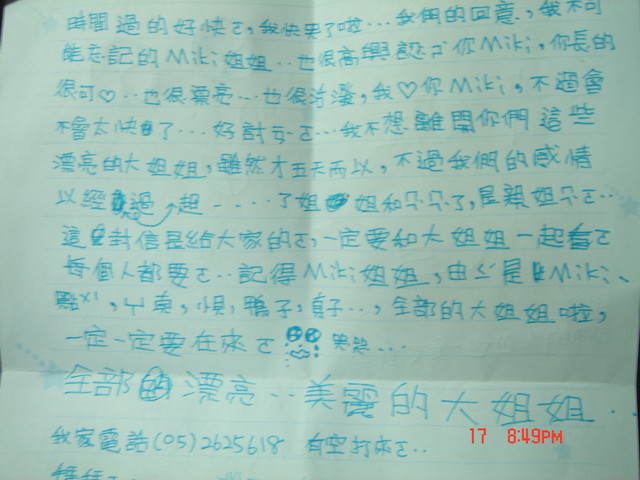 時間過的好快ㄛ,我快哭了啦...我們的回憶,我不可
能忘記的Miki姐姐..也很高興認ㄕ你Miki,你長的
很可♡..也很漂亮...也很活潑,我♡你Miki,不過會
不會太快了...好討ㄧㄢˋㄛ...我不想離開你們這些
漂亮的大姐姐,雖然才五天而以,不過我們的感情
以經超過一起.....了姐姐和
這封信是給大家的ㄛ,一定要和大姐姐一起看ㄛ
每個人都要ㄛ..記得Miki姐姐,由ㄑㄧ是Miki、
點,小真,小貝,鴨子,貞子...,全部的大姐姐啦,
一定一定要在來ㄛ 笑笑...
全部的漂亮..美麗的大姐姐..
我家電話(05)2625618 有空打來ㄛ..
17 8:49PM